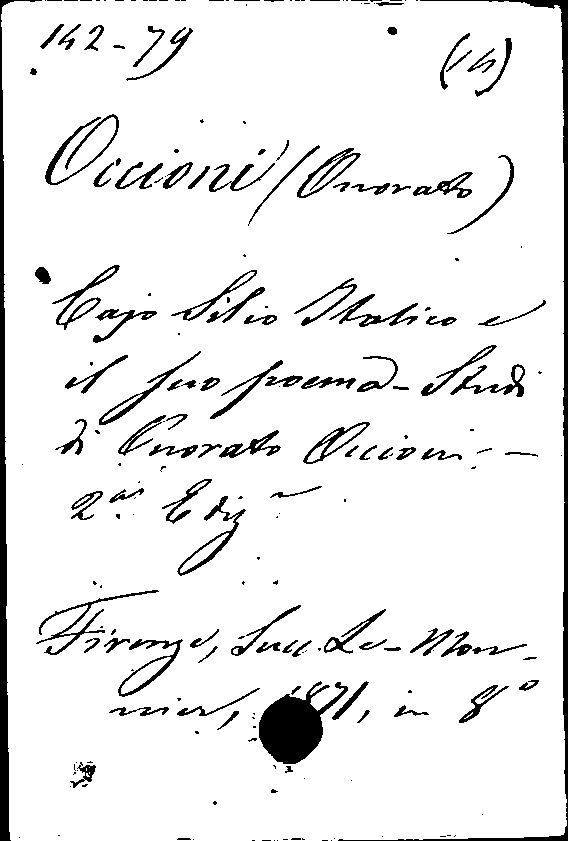 142-79 (14)
Occioni (Onorato)
Cajo Silio Italico e
il suo poema - Studi
di Onorato Occioni. -
2ª. Ediz
Firenze, Succ. Le-Mon-
nier, 1871, in 8º